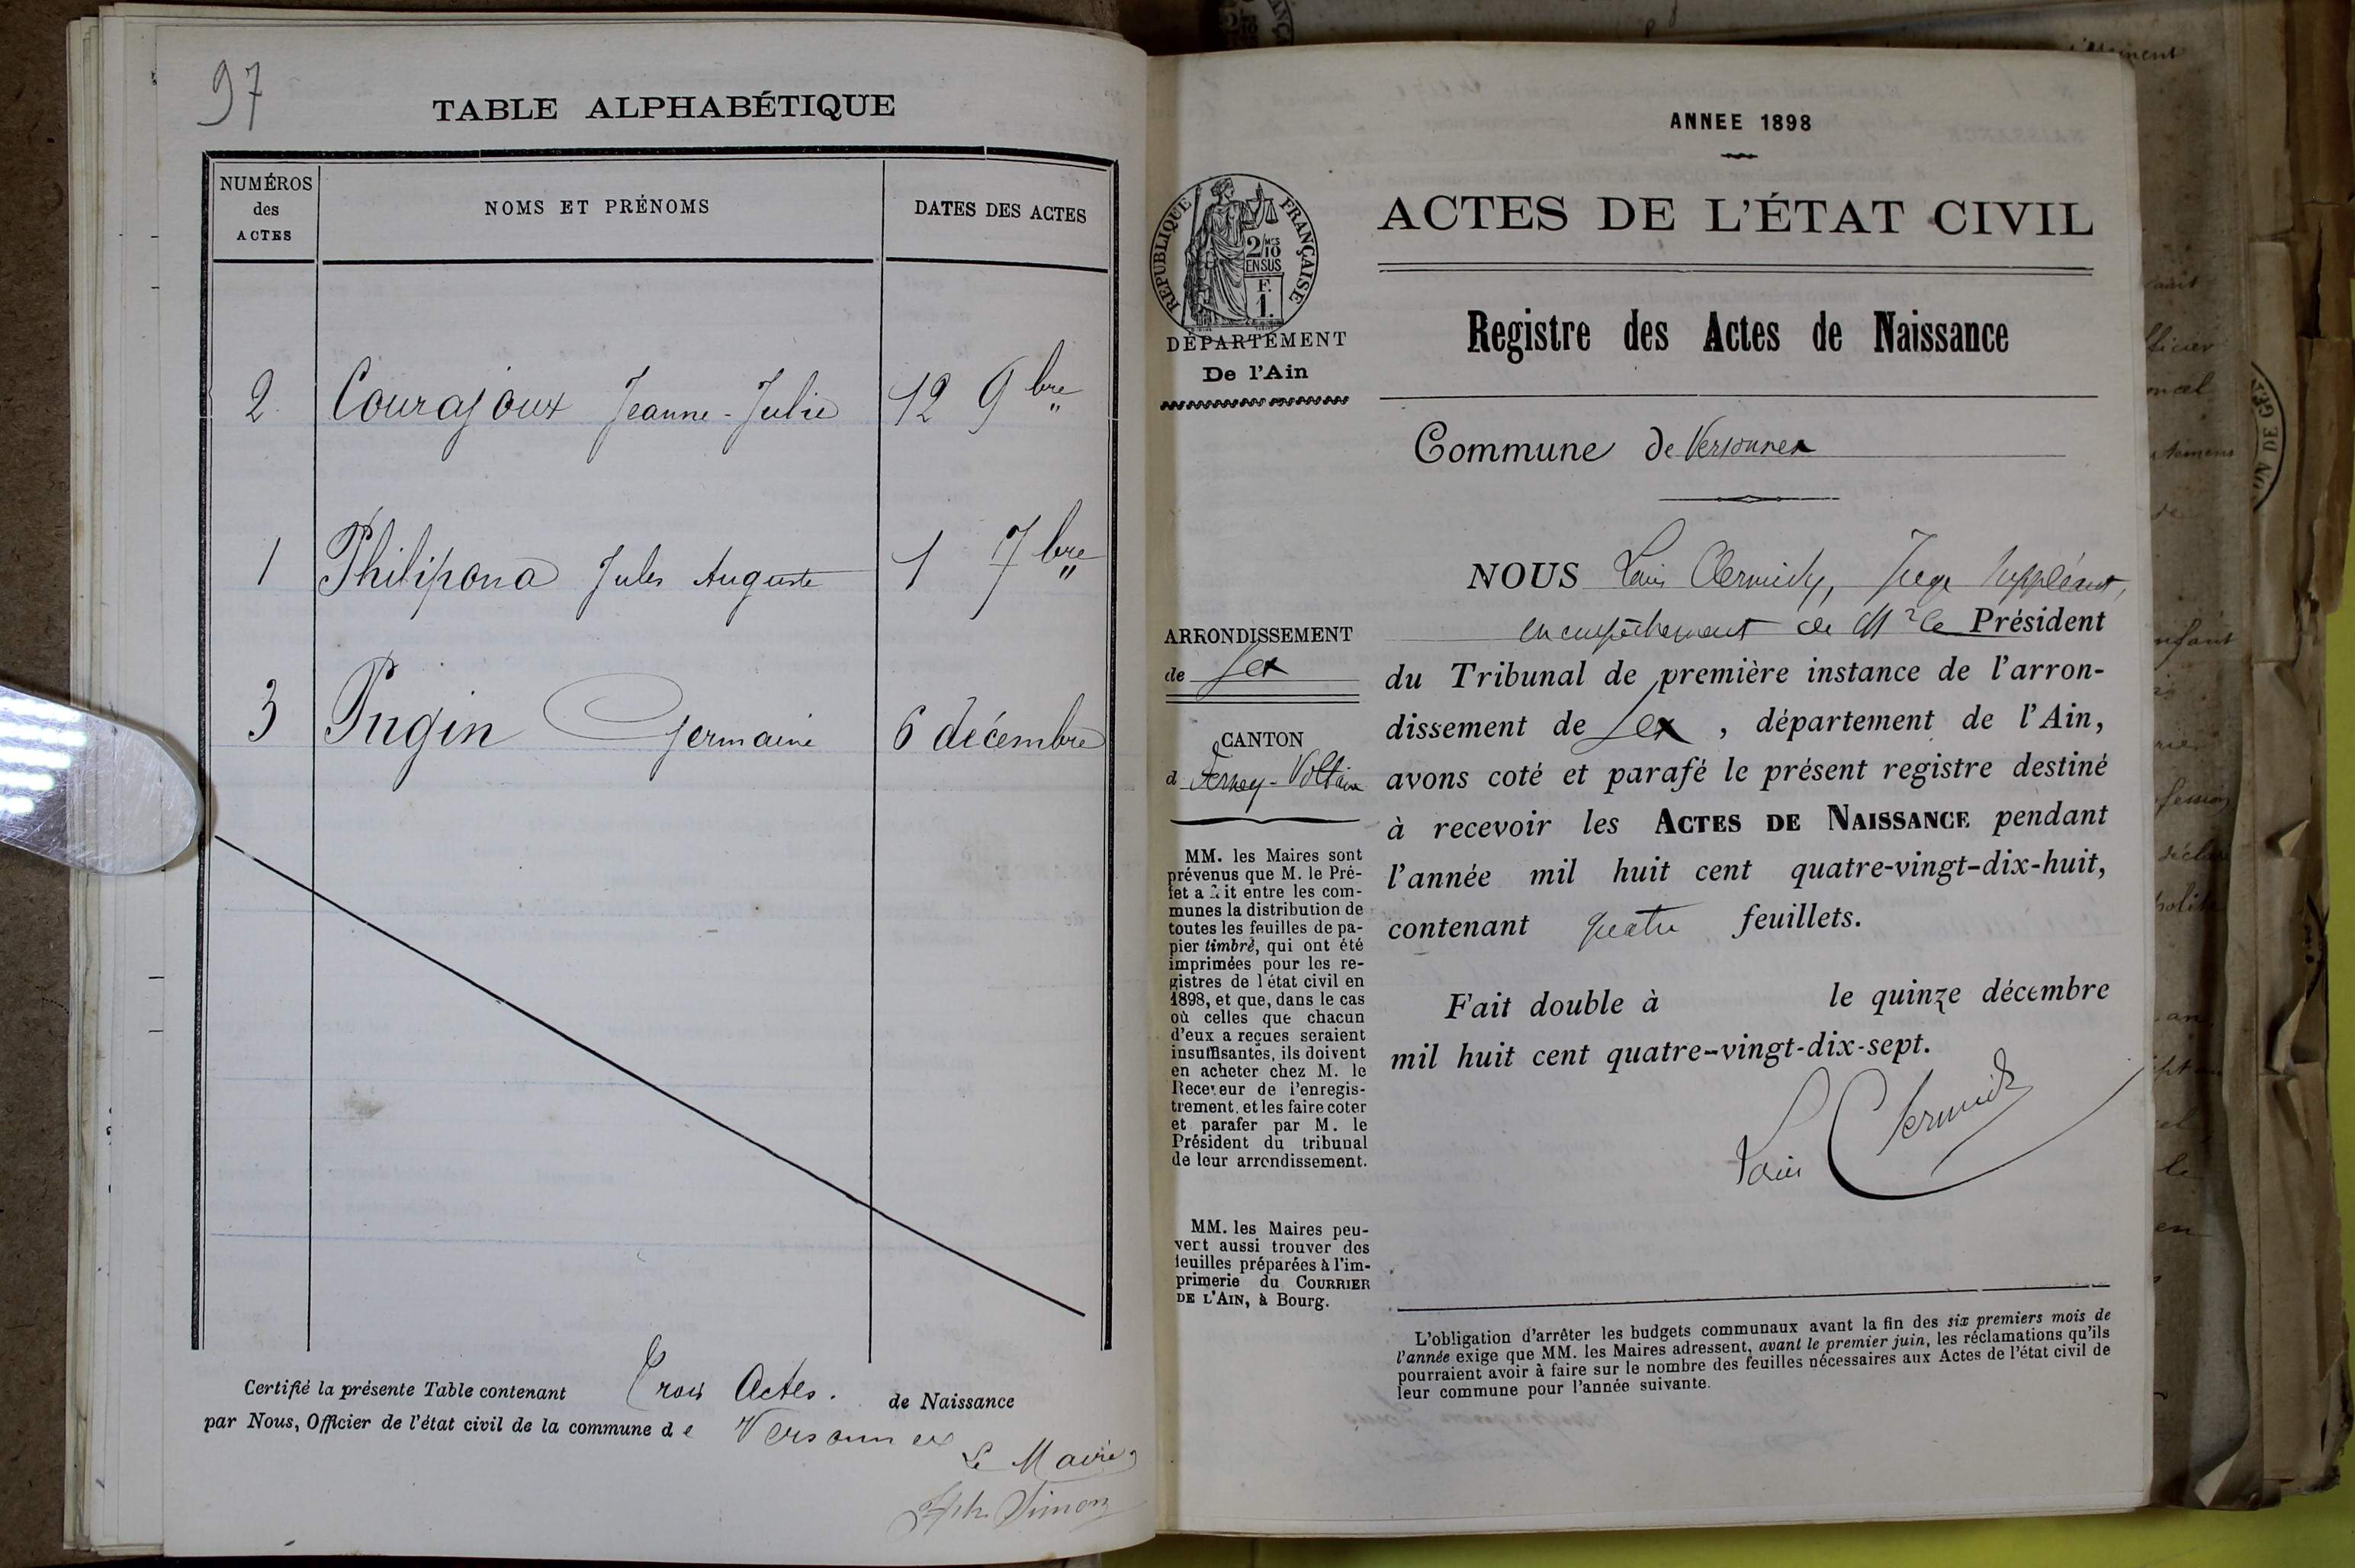 97
TABLE ALPHABÉTIQUE
NUMÉROS
des
ACTES
NOMS ET PRÉNOMS
DATES DES ACTES
2 Courajoux Jeanne-Julie 12 9bre "
1 Philipona Jules Auguste 1 7bre "
3 Pugin Germaine 6 décembre
Certifié la présente Table contenant Trois Actes. de Naissance
par Nous, Officier de l'état civil de la commune de Versonnex
Le Maire
Jph. Simon
ANNEE 1898
ACTES DE L'ÉTAT CIVIL
RÉPUBLIQUE FRANÇAISE
2/10
EN SUS
F.
1.
DÉPARTEMENT
De l'Ain
Registre des Actes de Naissance
Commune de Versonnex
ARRONDISSEMENT
de Gex
CANTON
d Ferney-Voltaire
MM. les Maires sont
prévenus que M. le Pré-
fet a fait entre les com-
munes la distribution de
toutes les feuilles de pa-
pier timbré, qui ont été
imprimées pour les re-
gistres de l'état civil en
1898, et que, dans le cas
où celles que chacun
d'eux a reçues seraient
insuffisantes, ils doivent
en acheter chez M. le
Receveur de l'enregis-
trement, et les faire coter
et parafer par M. le
Président du tribunal
de leur arrondissement.
MM. les Maires peu-
vert aussi trouver des
feuilles préparées à l'im-
primerie du COURRIER
DE L'AIN, à Bourg.
NOUS Louis Clermidy, Juge Suppléant,
en empêchement de Mr le Président
du Tribunal de première instance de l'arron-
dissement de Gex, département de l'Ain,
avons coté et parafé le présent registre destiné
à recevoir les ACTES DE NAISSANCE pendant
l'année mil huit cent quatre-vingt-dix-huit,
contenant quatre feuillets.
Fait double à le quinze décembre
mil huit cent quatre-vingt-dix-sept.
Louis Clermidy
L'obligation d'arrêter les budgets communaux avant la fin des six premiers mois de
l'année exige que MM. les Maires adressent, avant le premier juin, les réclamations qu'ils
pourraient avoir à faire sur le nombre des feuilles nécessaires aux Actes de l'état civil de
leur commune pour l'année suivante.